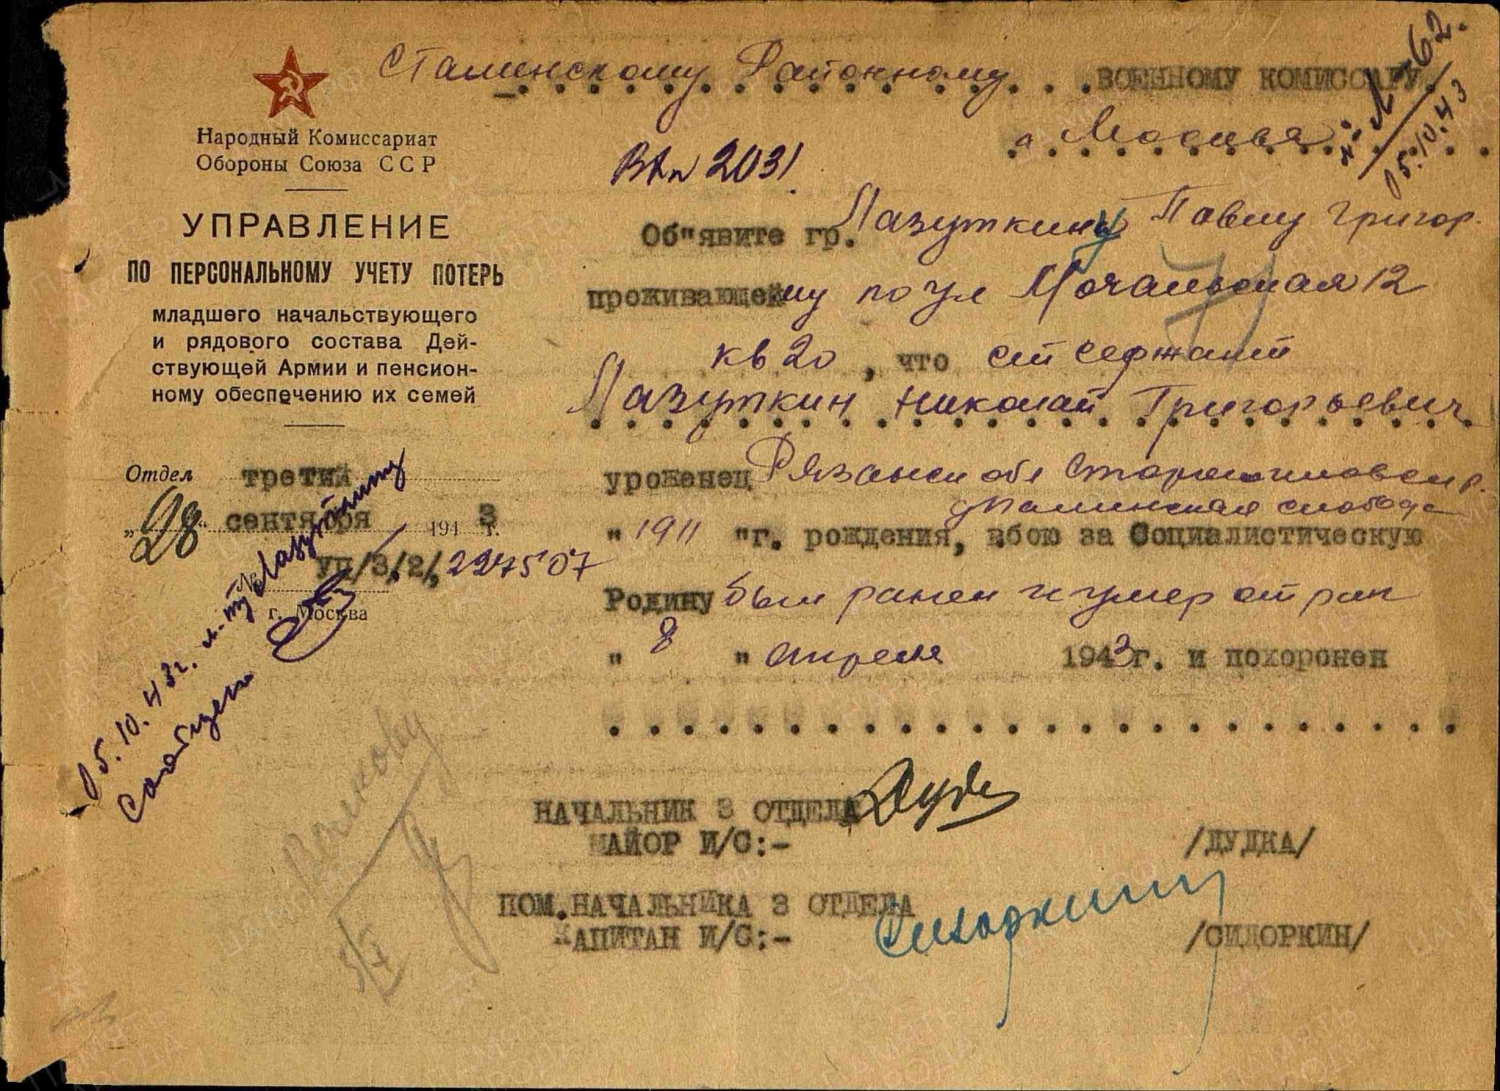 Сталинскому Районному ВОЕННОМУ КОМИССАРУ.
г Москва
н-Л-62.
05.10.43
Народный Комиссариат
Обороны Союза ССР
УПРАВЛЕНИЕ
ПО ПЕРСОНАЛЬНОМУ УЧЕТУ ПОТЕРЬ
младшего начальствующего
и рядового состава Дей-
ствующей Армии и пенсион-
ному обеспечению их семей
Отдел третий
"28" сентября 1943 г.
№ уп/3/2/, 227507
г. Москва
05.10.43г. Лазуткину
сообщен
Вхп 2031
Об"явите гр. Лазуткину Павлу Григор.
проживающему по ул Мочальская 12
кв 20, что ст сержант
Лазуткин Николай Григорьевич
уроженец Рязанск обл Старожиловск р.
слобода
"1911 "г. рождения, вбою за Социалистическую
Родину был ранен и умер от ран
" 8 " апреля 1943г. и похоронен
НАЧАЛЬНИК 3 ОТДЕЛА
МАЙОР И/С:- /ДУДКА/
ПОМ.НАЧАЛЬНИКА 3 ОТДЕЛА
КАПИТАН И/С:- /СИДОРКИН/
Волкову